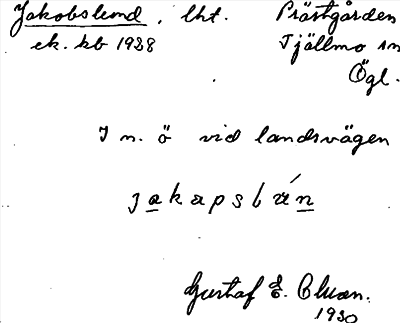 Jakobslund, lht. Prästgården
ek. kb 1928 Tjällmo sn
Ögl.
I n. ö vid landsvägen
jakapsbǘn
Gustaf E. Cluan.
1930